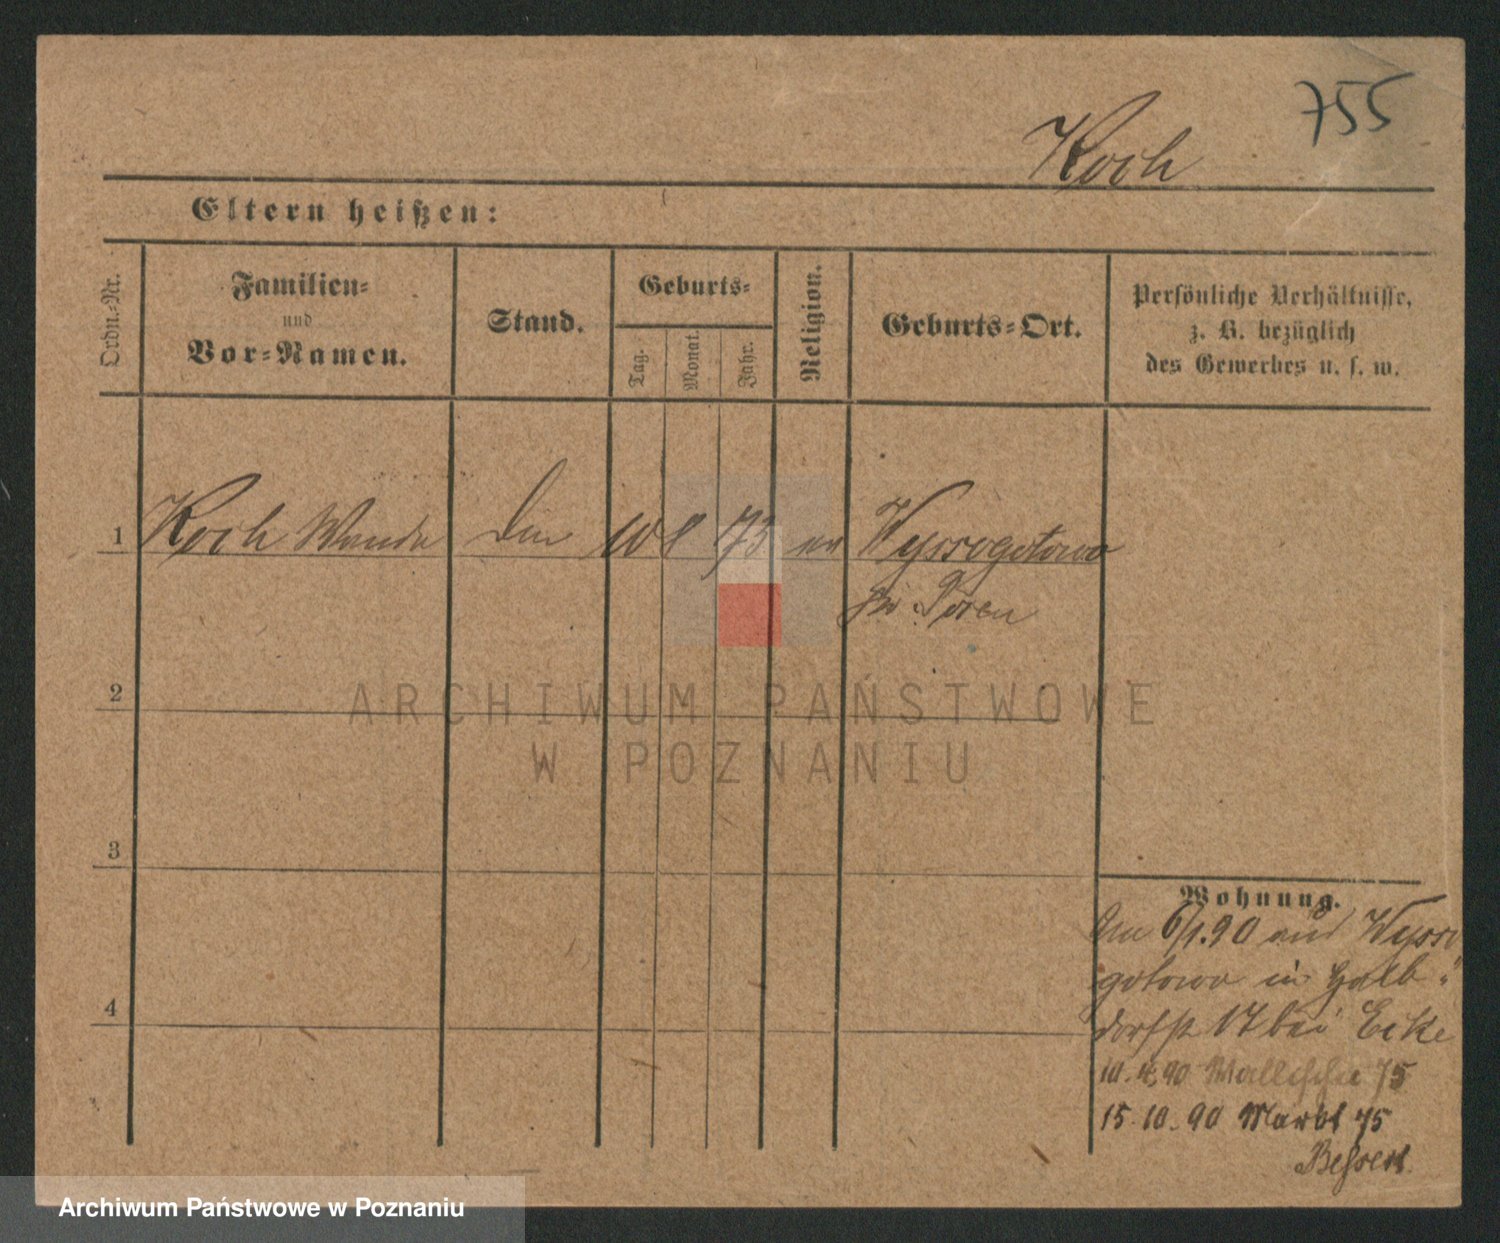 755
Koch
Eltern heißen:
Ordn.-Nr.
Familien-
und
Vor-Namen.
Stand.
Geburts-
Tag.
Monat.
Jahr.
Religion.
Geburts-Ort.
Persönliche Verhältnisse,
z. B. bezüglich
des Gewerbes u. s. w.
1 Koch Wanda 10 8 73 ev Wyssogotowo
bei Posen
2
ARCHIWUM PAŃSTWOWE
W POZNANIU
3
4
Wohnung.
Am 6/1.90 aus Wysso
gotowo in Halb-
dorfst 17 bei Ecke
10.4.90 Wallischei 75
15.10.90 Markt 75
Archiwum Państwowe w Poznaniu